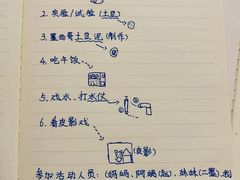 2. 实验/试验（土豆）
3. 墨西哥土豆泥（制作）
4. 吃午饭
5. 戏水、打水仗
6. 看皮影戏
（皮影）
参加活动人员：（妈妈、阿姨（赵）、妹妹（二宝）、我）